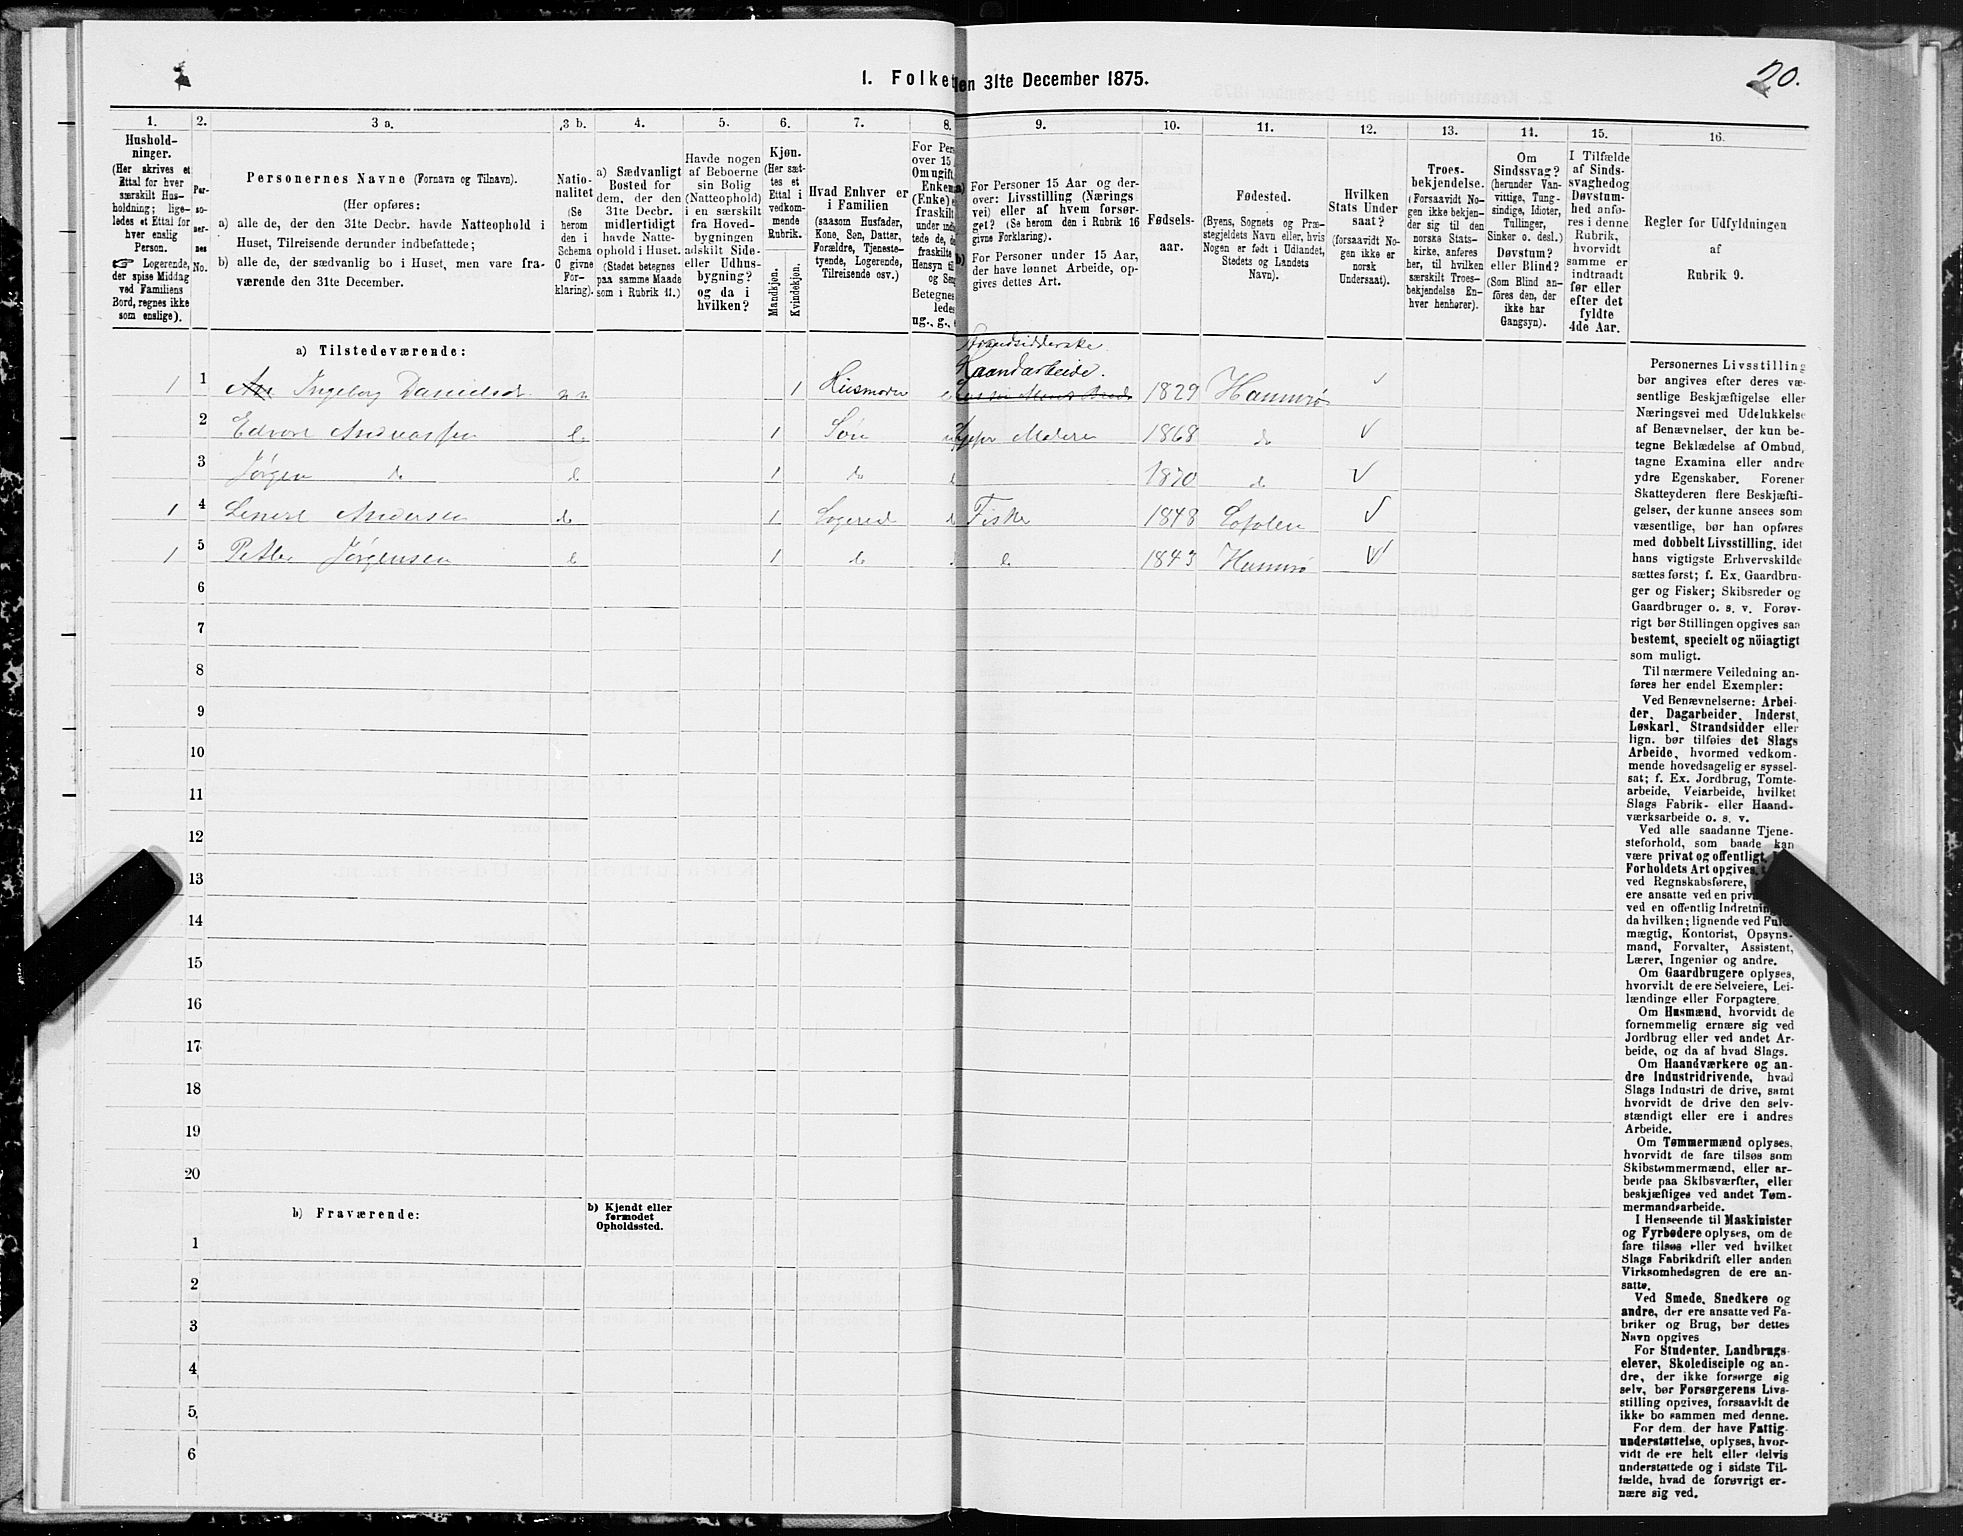 20.
I. Folke
den 31te December 1875.
1. 2. 3 a. 3 b. 4. 5. 6. 7. 8. 9. 10. 11. 12. 13. 14. 15. 16.
Hushold-
ninger.
(Her skrives et
Ettal for hver
særskilt Hus-
holdning; lige-
ledes et Ettal for
hver enslig
Person.
☞ Logerende,
der spise Middag
ved Familiens
Bord, regnes ikke
som enslige).
Per-
so-
ner-
nes
No.
Personernes Navne (Fornavn og Tilnavn).
(Her opføres:
a) alle de, der den 31te Decbr. havde Natteophold i
Huset, Tilreisende derunder indbefattede;
b) alle de, der sædvanlig bo i Huset, men vare fra-
værende den 31te December.
Natio-
nalitet
(Se
herom
den i
Schema
C givne
For-
klaring).
a) Sædvanligt
Bosted for
dem, der den
31te Decbr.
midlertidigt
havde Natte-
ophold i Huset.
(Stedet betegnes
paa samme Maade
som i Rubrik 11.)
Havde nogen
af Beboerne
sin Bolig
(Natteophold)
i en særskilt
fra Hoved-
bygningen
adskilt Side-
eller Udhus-
bygning?
og da i
hvilken?
Kjøn.
(Her sæt-
tes et
Ettal i
vedkom-
mende
Rubrik.
Mandkjøn.
Kvindekjøn.
Hvad Enhver er
i Familien
(saasom Husfader,
Kone, Søn, Datter,
Forældre, Tjeneste-
tyende, Logerende,
Tilreisende osv.)
For Per
over 15
Om ugift,
Enkem
(Enke)
fraskilt
under
tede de,
fraskilte
Hensyn til
og Sen
Betegnes
ledes
ug., g.,
a)
For Personer 15 Aar og der-
over: Livsstilling (Nærings
vei) eller af hvem forsør-
get? (Se herom den i Rubrik 16
givne Forklaring).
b)
For Personer under 15 Aar,
der have lønnet Arbeide, op-
gives dettes Art.
Fødsels-
aar.
Fødested.
(Byens, Sognets og Præ-
stegjeldets Navn eller, hvis
Nogen er født i Udlandet,
Stedets og Landets
Navn).
Hvilken
Stats Under
saat?
(forsaavidt No-
gen ikke er
norsk
Undersaat).
Troes-
bekjendelse.
(Forsaavidt No-
gen ikke bekjen-
der sig til den
norske Stats-
kirke, anføres
her, til hvilken
særskilt Troes-
bekjendelse En-
hver henhører).
Om
Sindssvag?
(herunder Van-
vittige, Tung-
sindige, Idioter,
Tullinger,
Sinker o. desl.)
Døvstum?
eller Blind?
(Som Blind an-
føres den, der
ikke har
Gangsyn).
I Tilfælde
af Sinds-
svaghedog
Døvstum-
hed anfø-
res i denne
Rubrik,
hvorvidt
samme er
indtraadt
før eller
efter det
fyldte
4de Aar.
Regler for Udfyldningen
af
Rubrik 9.
a) Tilstedeværende:
Strandsidderske
Haandarbeide.
1 1 Ingeborg Danielsd. nn 1 Husmoder 1829 Hammerø ✓
2 Edvart Andreassen d. 1 Søn Moderen 1868 do ✓
3 Jørgen do d 1 do 1870 do ✓
1 4 Lenert Andersen do 1 Logerend Fisker 1848 Lofoten ✓
1 5 Petter Jørgensen d 1 do d 1843 Hammerø ✓
6
7
8
9
10
11
12
13
14
15
16
17
18
19
20
b) Fraværende:
b) Kjendt eller
formodet
Opholdssted.
1
2
3
4
5
6
Personernes Livsstilling
bør angives efter deres væ-
sentlige Beskjæftigelse eller
Næringsvei med Udelukkelse
af Benævnelser, der kun be-
tegne Beklædelse af Ombud,
tagne Examina eller andre
ydre Egenskaber. Forener
Skatteyderen flere Beskjæfti-
gelser, der kunne ansees som
væsentlige, bør han opføres
med dobbelt Livsstilling, idet
hans vigtigste Erhvervskilde
sættes først; f. Ex. Gaardbru-
ger og Fisker; Skibsreder og
Gaardbruger o. s. v. Forøv-
rigt bør Stillingen opgives saa
bestemt, specielt og nöiagtigt
som muligt.
Til nærmere Veiledning an-
føres her endel Exempler:
Ved Benævnelserne: Arbei-
der, Dagarbeider, Inderst,
Løskarl, Strandsidder eller
lign. bør tilføies det Slags
Arbeide, hvormed vedkom-
mende hovedsagelig er syssel-
sat; f. Ex. Jordbrug, Tomte-
arbeide, Veiarbeide, hvilket
Slags Fabrik- eller Haand-
værksarbeide o. s. v.
Ved alle saadanne Tjene-
steforhold, som baade kan
være privat og offentligt,
Forholdets Art opgives,
ved Regnskabsførere,
ere ansatte ved en priv
ved en offentlig Indretnin
da hvilken; lignende ved Ful
mægtig, Kontorist, Opsyns-
mand, Forvalter, Assistent,
Lærer, Ingeniør og andre.
Om Gaardbrugere oplyses,
hvorvidt de ere Selveiere, Lei-
lændinge eller Forpagtere.
Om Husmænd, hvorvidt de
fornemmelig ernære sig ved
Jordbrug eller ved andet Ar-
beide, og da af hvad Slags.
Om Haandværkere og an-
dre Industridrivende, hvad
Slags Industri de drive, samt
hvorvidt de drive den selv-
stændigt eller ere i andres
Arbeide.
Om Tømmermænd oplyses,
hvorvidt de fare tilsøs som
Skibstømmermænd, eller ar-
beide paa Skibsværfter, eller
beskjæftiges ved andet Tøm-
mermandsarbeide.
I Henseende til Maskinister
og Fyrbødere oplyses, om de
fare tilsøs eller ved hvilket
Slags Fabrikdrift eller anden
Virksomhedsgren de ere an-
satte.
Ved Smede, Snedkere og
andre, der ere ansatte ved Fa-
briker og Brug, bør dettes
Navn opgives
For Studenter, Landbrugs-
elever, Skoledisciple og an-
dre, der ikke forsørge sig
selv, bør Forsørgerens Livs-
stilling opgives, forsaavidt de
ikke bo sammen med denne.
For dem, der have Fattig-
understøttelse, oplyses, hvor-
vidt de ere helt eller delvis
understøttede og i sidste Til-
fælde, hvad de forøvrigt er-
nære sig ved.